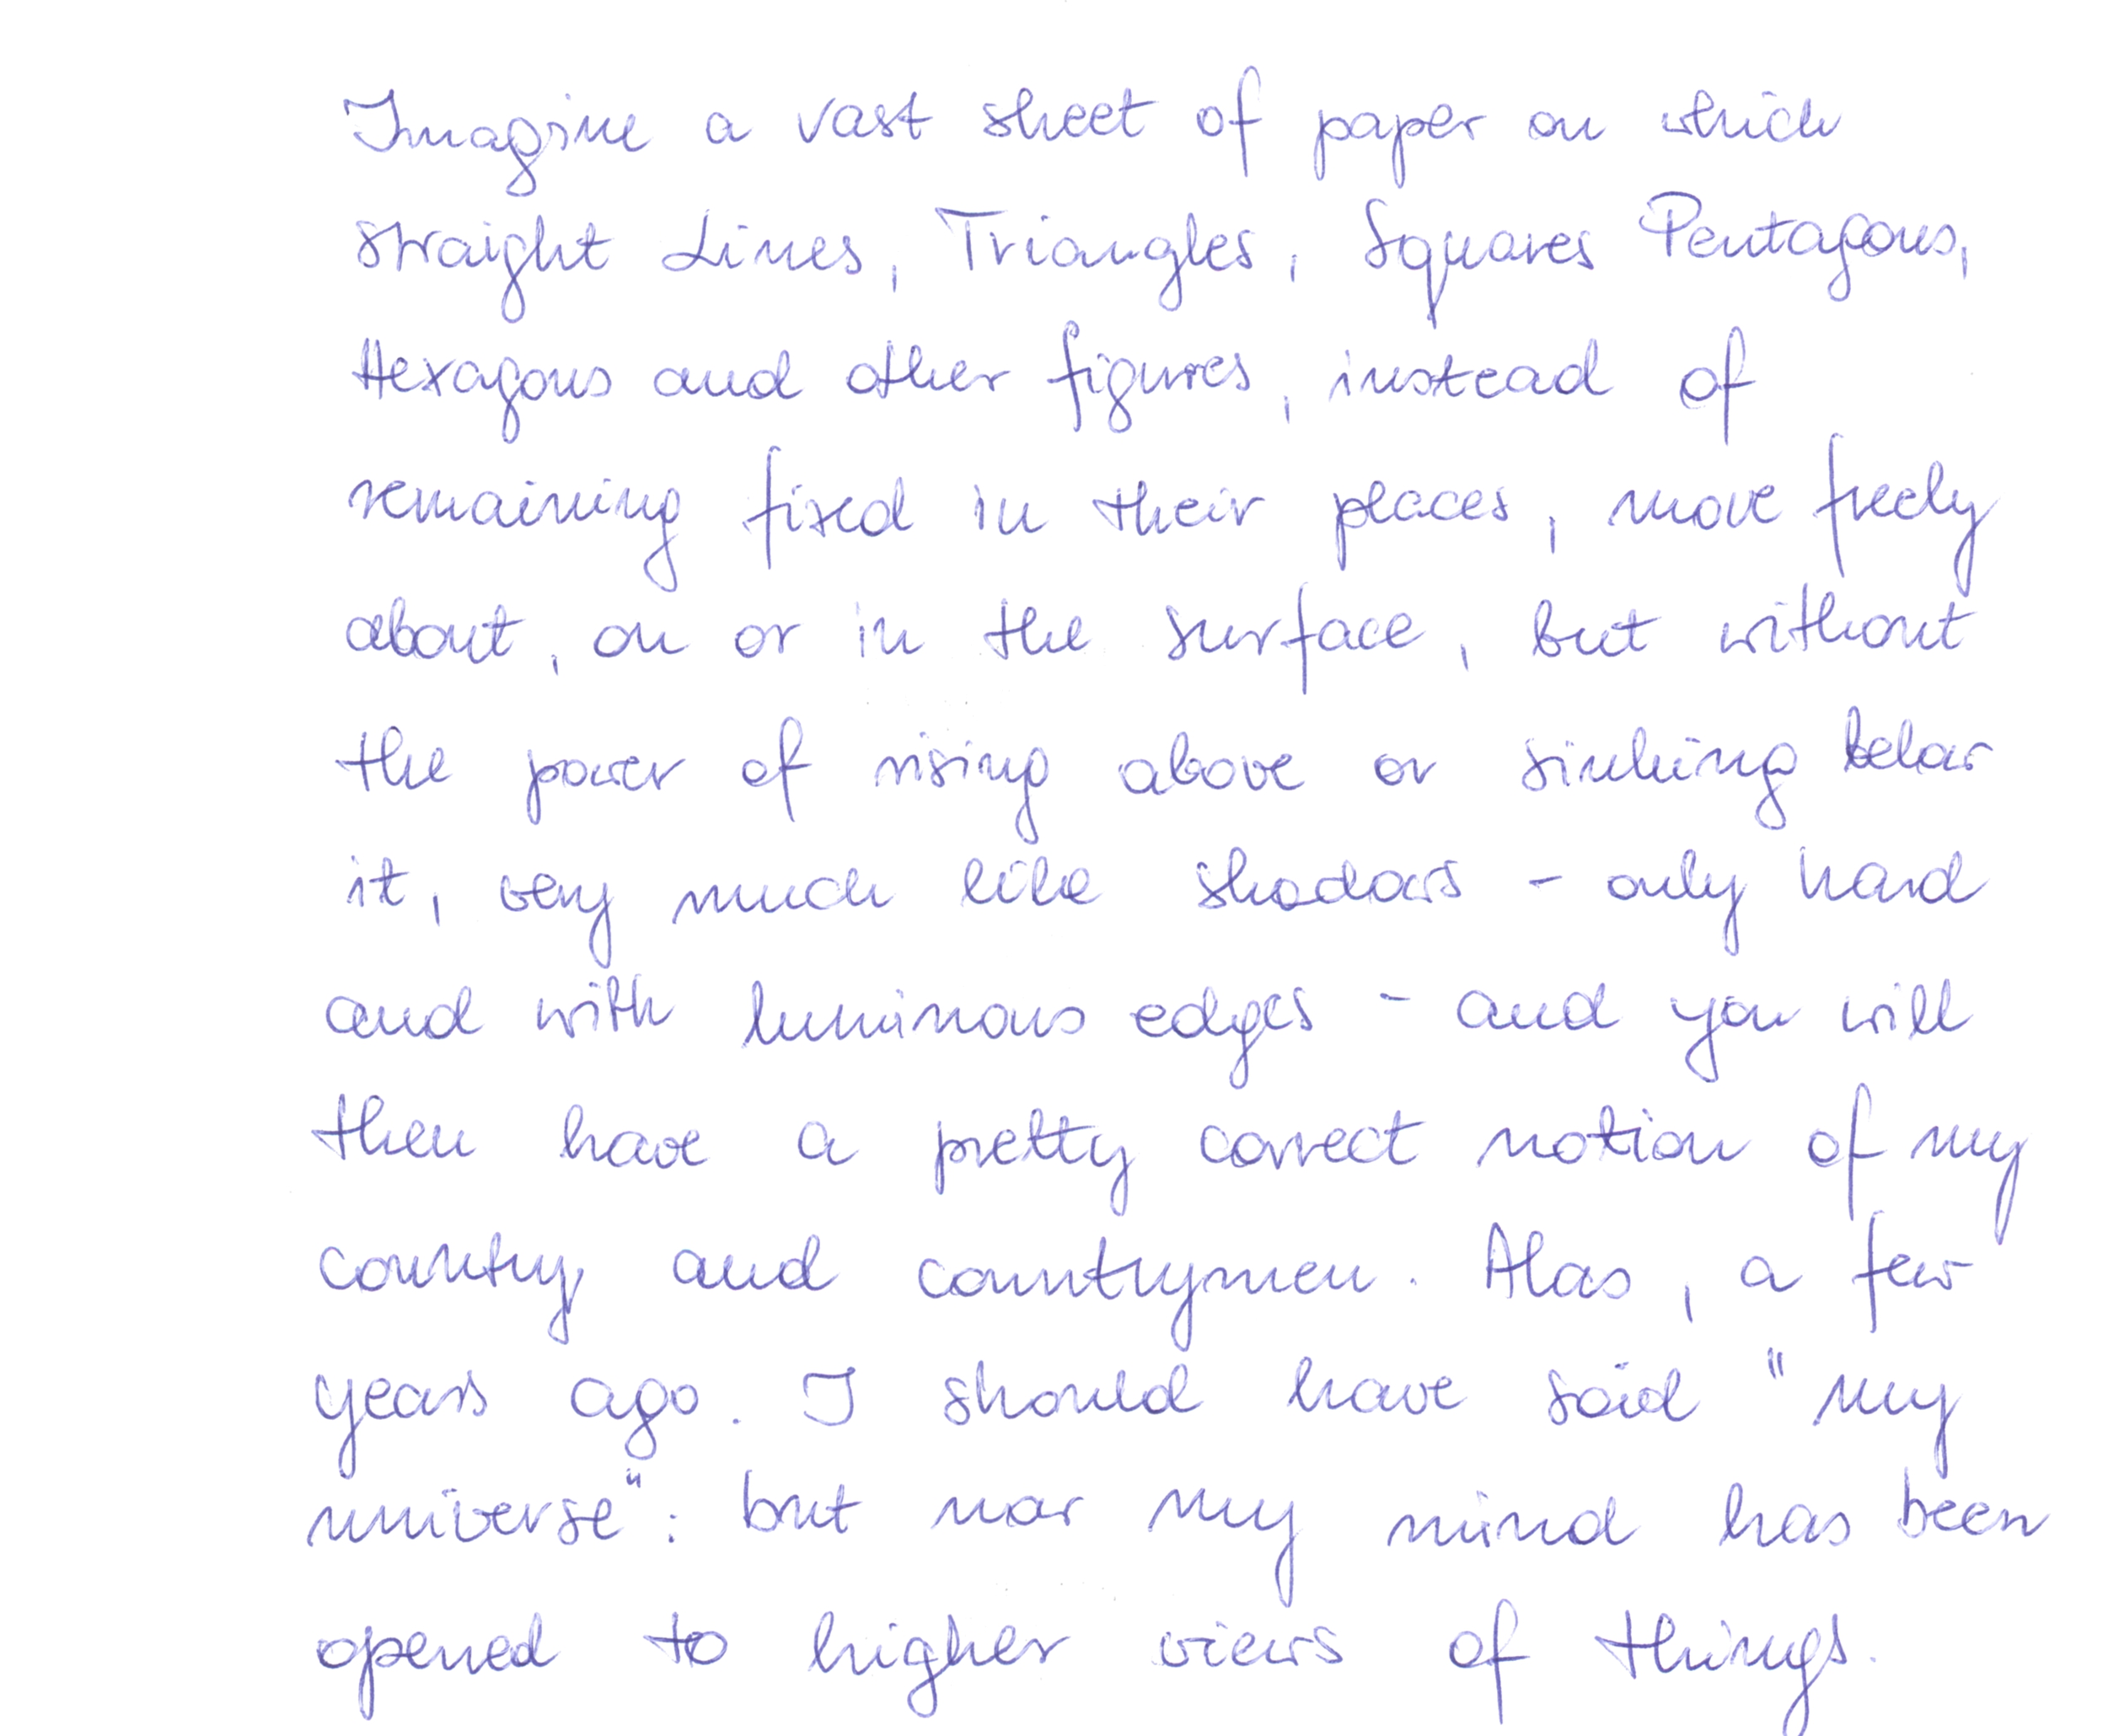 Imagine a vast sheet of paper on which
straight Lines, Triangles, Squares Pentagons,
Hexagons and other figures, instead of
remaining fixed in their places, move freely
about, on or in the surface, but without
the power of rising above or sinking below
it, very much like shadows - only hard
and with luminous edges - and you will
then have a pretty correct notion of my
country and countrymen. Alas, a few
years ago. I should have said "my
universe": but now my mind has been
opened to higher views of things.